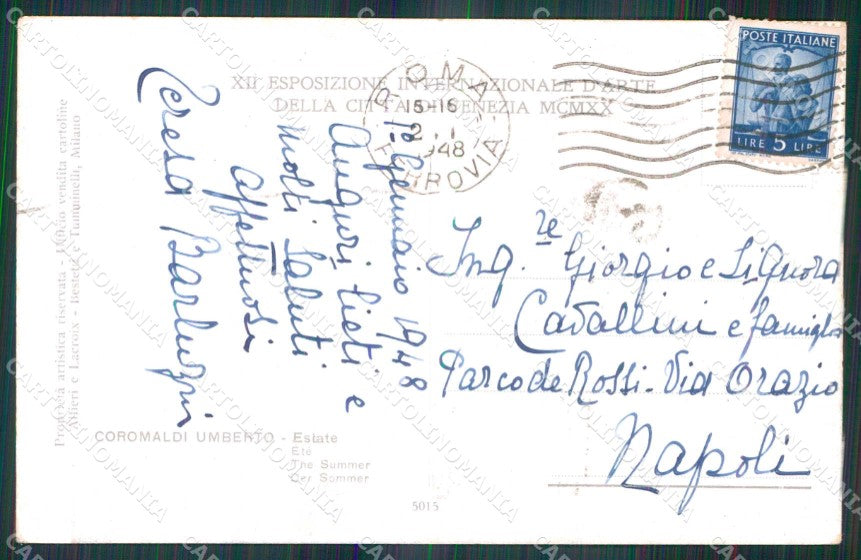 XII ESPOSIZIONE INTERNAZIONALE D'ARTE
DELLA CITTA DI VENEZIA MCMXX
ROMA
15-16
2.1
1948
FERROVIA
POSTE ITALIANE
LIRE 5 LIRE
1º Gennaio 1948
Auguri lieti e
molti saluti
affettuosi
Teresa Barluzzi
Ing.re Giorgio e Signora
Cavallini e famiglia
Parco de Rossi - Via Orazio
Napoli
Proprietà artistica riservata - Ufficio vendita cartoline
Alfieri e Lacroix - Bestetti e Tumminelli, Milano
COROMALDI UMBERTO - Estate
Eté
The Summer
Der Sommer
5015
CARTOLINOMANIA